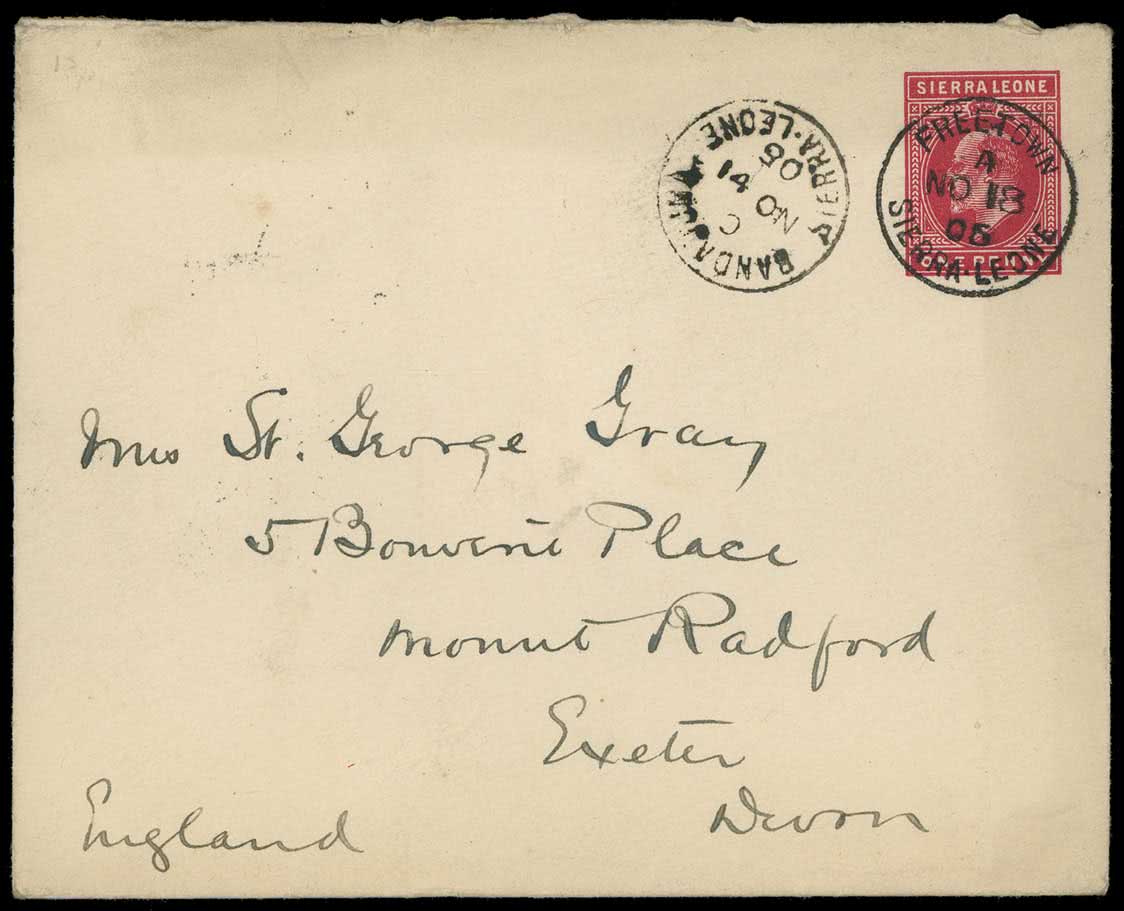 SIERRA LEONE
ONE PENNY
FREETOWN
A
NO 18
05
SIERRA·LEONE
BANDAJUMA
SIERRA·LEONE
C
NO 14
05
Mrs St. George Gray
5 Bouverie Place
Mount Radford
Exeter
Devon
England